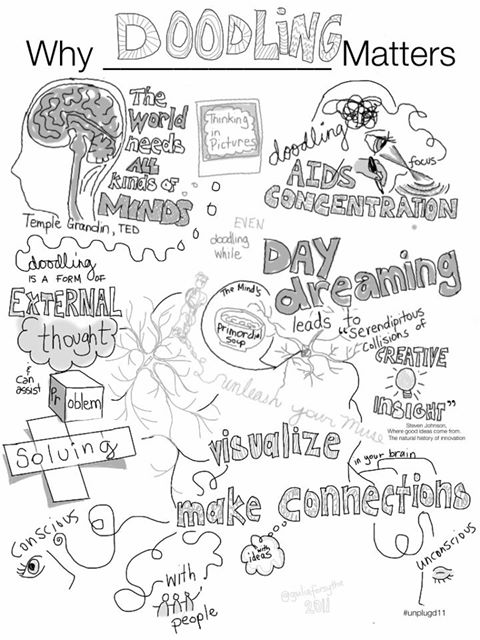 Why DOODLING Matters
The
World
needs
ALL
kinds of
MINDS
Temple Grandin, TED
Thinking
in
Pictures
doodling
AIDS
CONCENTRATION
focus
EVEN
doodling
while
DAY
dreaming
leads to
"Serendipitous
Collisions of
CREATIVE
INSIGHT"
Steven Johnson,
Where good ideas come from.
The natural history of innovation
doodling
IS A FORM OF
EXTERNAL
thought
& can
assist
Problem
Solving
The Mind's
Primordial
Soup
unleash your Muse
visualize
in your brain
make connections
Conscious
with
people
with
ideas
unconscious
@giuliaforsythe
2011
#unplugd11